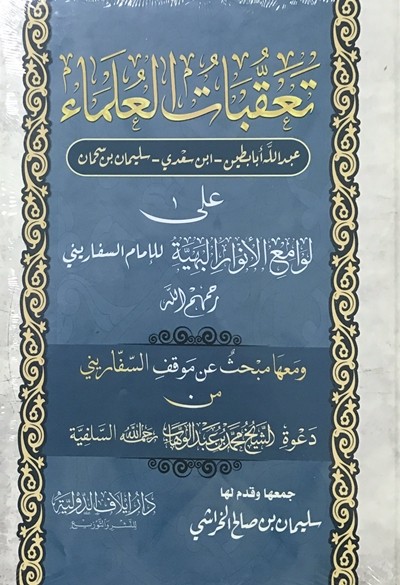 تعقبات العلماء
عبدالله أبابطين - ابن سعدي - سليمان بن سحمان
على
لوامع الأنوار البهية للإمام السفاريني
رحمهم الله
ومعها مبحث عن موقف السفّاريني
من
دعوة الشيخ محمد بن عبد الوهاب رحمه الله السلفية
جمعها وقدم لها
سليمان بن صالح الخراشي
دار إيلاف الدولية
للنشر والتوزيع